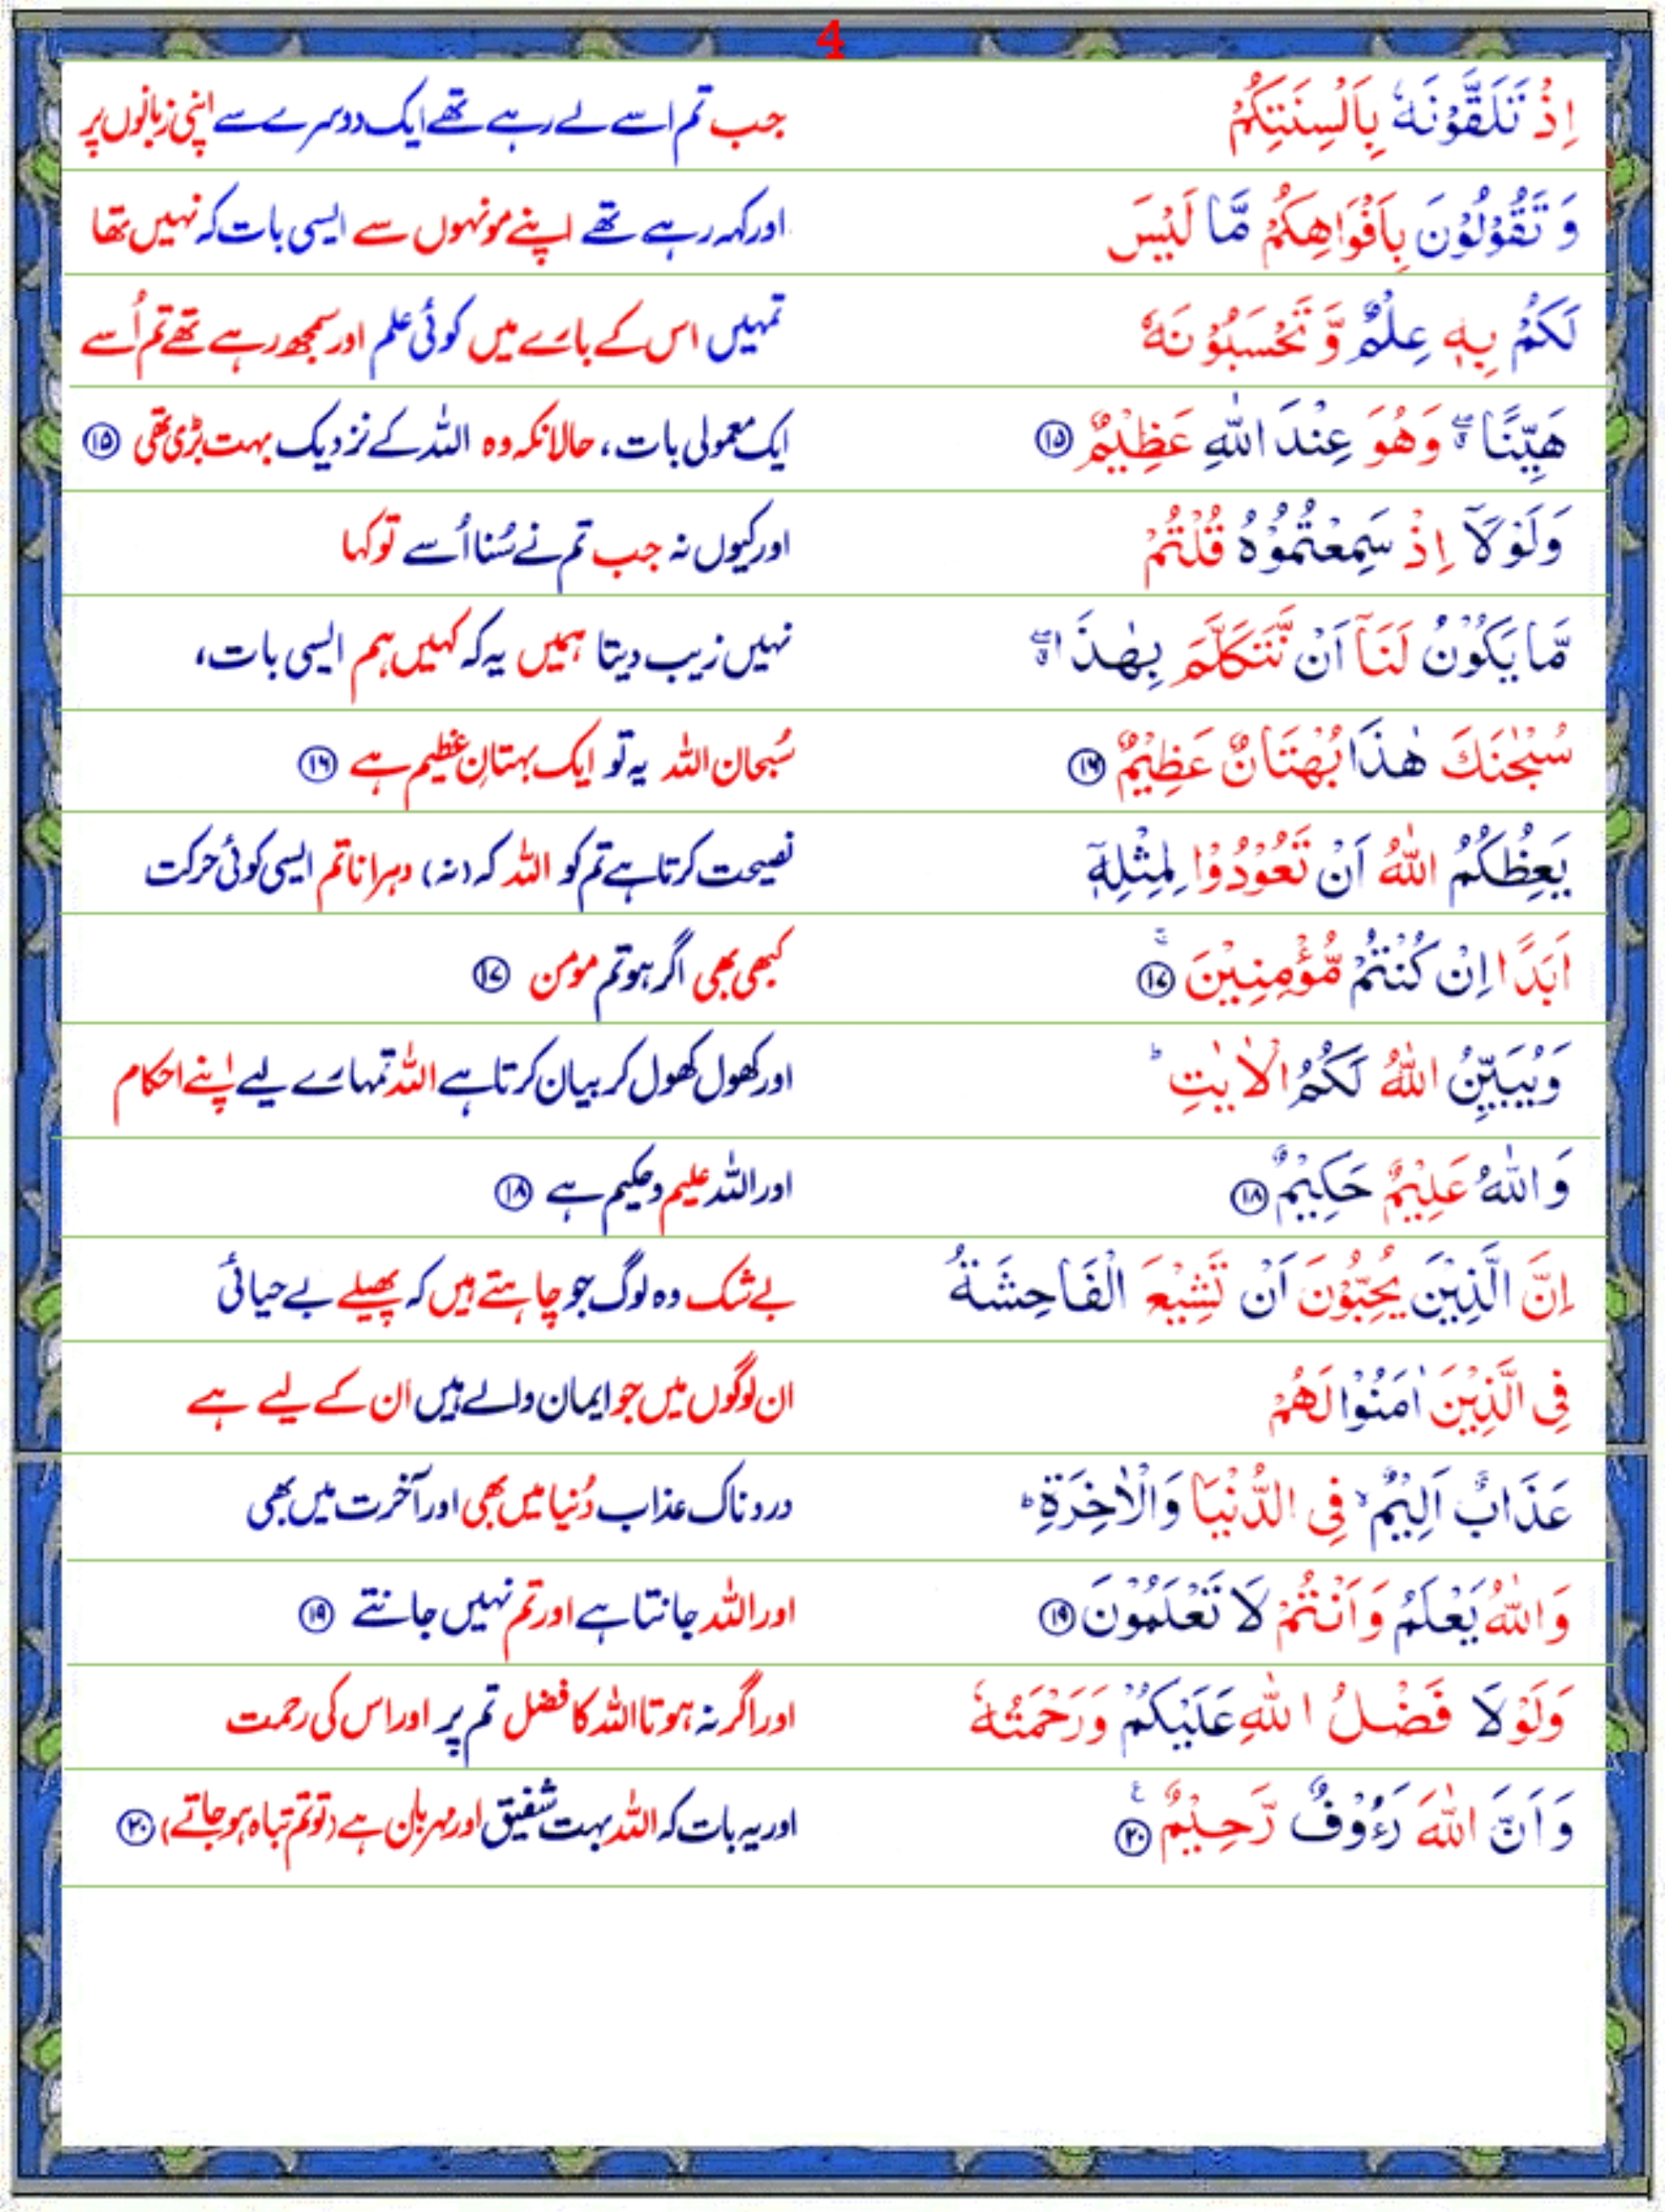 4
اِذْ تَلَقَّوْنَهٗ بِاَلْسِنَتِكُمْ جب تم اسے لے رہے تھے ایک دوسرے سے اپنی زبانوں پر
وَ تَقُوْلُوْنَ بِاَفْوَاهِكُمْ مَّا لَیْسَ اور کہہ رہے تھے اپنے مونہوں سے ایسی بات کہ نہیں تھا
لَكُمْ بِهٖ عِلْمٌ وَّ تَحْسَبُوْنَهٗ تمہیں اس کے بارے میں کوئی علم اور سمجھ رہے تھے تم اُسے
هَیِّنًا ۖۗ وَهُوَ عِنْدَ اللّٰهِ عَظِیْمٌ ﴿۱۵﴾ ایک معمولی بات، حالانکہ وہ اللہ کے نزدیک بہت بڑی تھی ﴿۱۵﴾
وَلَوْلَاۤ اِذْ سَمِعْتُمُوْهُ قُلْتُمْ اور کیوں نہ جب تم نے سُنا اُسے تو کہا
مَّا یَكُوْنُ لَنَاۤ اَنْ نَّتَكَلَّمَ بِهٰذَا ۖۗ نہیں زیب دیتا ہمیں یہ کہ کہیں ہم ایسی بات،
سُبْحٰنَكَ هٰذَا بُهْتَانٌ عَظِیْمٌ ﴿۱۶﴾ سُبحان اللہ یہ تو ایک بہتانِ عظیم ہے ﴿۱۶﴾
یَعِظُكُمُ اللّٰهُ اَنْ تَعُوْدُوْا لِمِثْلِهٖۤ نصیحت کرتا ہے تم کو اللہ کہ (نہ) دہرانا تم ایسی کوئی حرکت
اَبَدًا اِنْ كُنْتُمْ مُّؤْمِنِیْنَ ﴿۱۷﴾ۚ کبھی بھی اگر ہو تم مومن ﴿۱۷﴾
وَیُبَیِّنُ اللّٰهُ لَكُمُ الْاٰیٰتِ ؕ اور کھول کھول کر بیان کرتا ہے اللہ تمہارے لیے اپنے احکام
وَ اللّٰهُ عَلِیْمٌ حَكِیْمٌ ﴿۱۸﴾ اور اللہ علیم و حکیم ہے ﴿۱۸﴾
اِنَّ الَّذِیْنَ یُحِبُّوْنَ اَنْ تَشِیْعَ الْفَاحِشَةُ بے شک وہ لوگ جو چاہتے ہیں کہ پھیلے بے حیائی
فِی الَّذِیْنَ اٰمَنُوْا لَهُمْ ان لوگوں میں جو ایمان والے ہیں اُن کے لیے ہے
عَذَابٌ اَلِیْمٌ ۙ فِی الدُّنْیَا وَالْاٰخِرَةِ ؕ دردناک عذاب دُنیا میں بھی اور آخرت میں بھی
وَ اللّٰهُ یَعْلَمُ وَ اَنْتُمْ لَا تَعْلَمُوْنَ ﴿۱۹﴾ اور اللہ جانتا ہے اور تم نہیں جانتے ﴿۱۹﴾
وَلَوْلَا فَضْلُ اللّٰهِ عَلَیْكُمْ وَرَحْمَتُهٗ اور اگر نہ ہوتا اللہ کا فضل تم پر اور اس کی رحمت
وَ اَنَّ اللّٰهَ رَءُوْفٌ رَّحِیْمٌ ﴿۲۰﴾ع اور یہ بات کہ اللہ بہت شفیق اور مہربان ہے (تو تم تباہ ہو جاتے) ﴿۲۰﴾